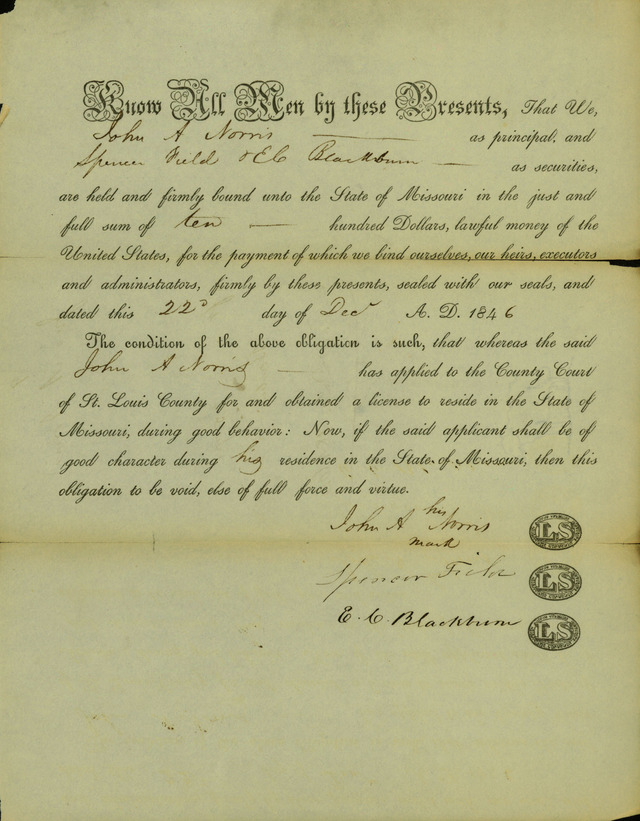 Know All Men by these Presents, That We,
John A Norris as principal, and
Spencer Field & E C Blackburn as securities,
are held and firmly bound unto the State of Missouri in the just and
full sum of ten hundred Dollars, lawful money of the
United States, for the payment of which we bind ourselves, our heirs, executors
and administrators, firmly by these presents, sealed with our seals, and
dated this 22d day of Decr A. D. 1846
The condition of the above obligation is such, that whereas the said
John A Norris has applied to the County Court
of St. Louis County for and obtained a license to reside in the State of
Missouri, during good behavior: Now, if the said applicant shall be of
good character during his residence in the State of Missouri, then this
obligation to be void, else of full force and virtue.
his
John A Norris LS
mark
Spencer Field LS
E. C. Blackburn LS